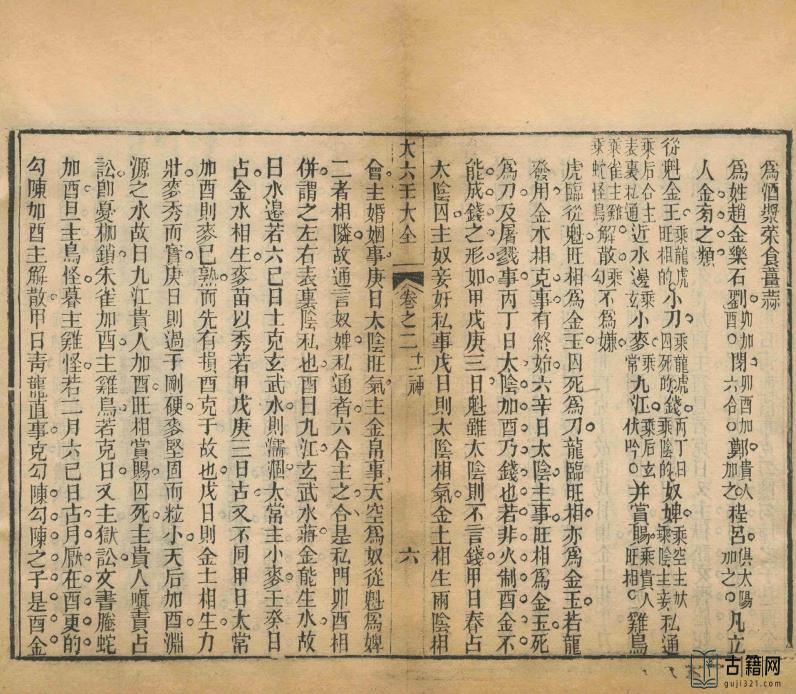 爲酒漿菜食薑蒜
爲姓趙金樂石劉卯加酉閔卯酉加六合鄭貴人加之程呂俱太陽加之凡立
人金旁之類
從魁金玉乘龍虎旺相的小刀乘龍虎囚死的錢丙丁日乘陰的奴婢乘空主奴乘陰主妾私通
乘后合主表裏私通近水邊乘玄小麥乘常九江乘后玄伏吟并賞賜乘貴人旺相雞鳥
乘雀主雞乘蛇怪鳥解散乘勾不爲嫌
虎臨從魁旺相爲金玉囚死爲刀龍臨旺相亦爲金玉若龍
發用金水相克事有終始六辛日太陰主事旺相爲金玉死
爲刀及屠戮事丙丁日太陰加酉乃錢也若非火制酉金不
能成錢之形如甲戊庚三日魁雖太陰則不言錢甲日春占
太陰囚主奴妾奸私事戊日則太陰相氣金土相生兩陰相
大六壬大全
卷之二 十二神
六
會主婚姻事庚日太陰旺氣主金帛事天空爲奴從魁爲婢
二者相隣故通言奴婢私通者六合主之合是私門卯酉相
併謂之左右表裏陰私也酉曰九江玄武水蒞金能生水故
曰水邊若六己日土克玄武水則濡涸太常主小麥壬癸日
占金水相生麥苗以秀若甲戊庚三日占又不同甲日太常
加酉則麥已熟而先有損酉克于故也戊日則金土相生力
壯麥秀而實庚日則過于剛硬麥堅固而粒小天后加酉淵
源之水故曰九江貴人加酉旺相賞賜囚死主貴人嗔責占
訟卽憂枷鎖朱雀加酉主雞鳥若克日又主獄訟文書螣蛇
加酉旦主鳥怪暮主雞怪若二月六己日占月厭在酉更的
勾陳加酉主解散甲日靑龍直事克勾陳勾陳之子是酉金
古籍网
guji321.com